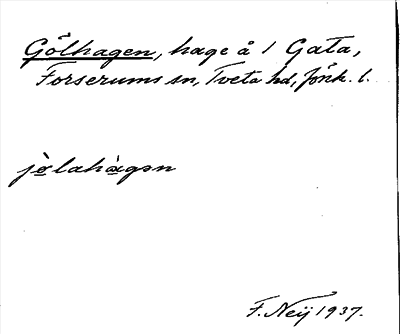 Gölhagen, hage å 1 Gata,
Forserums sn, Tveta hd, Jönk. l.
jò̱lahà̱gən
F. Neij 1937.